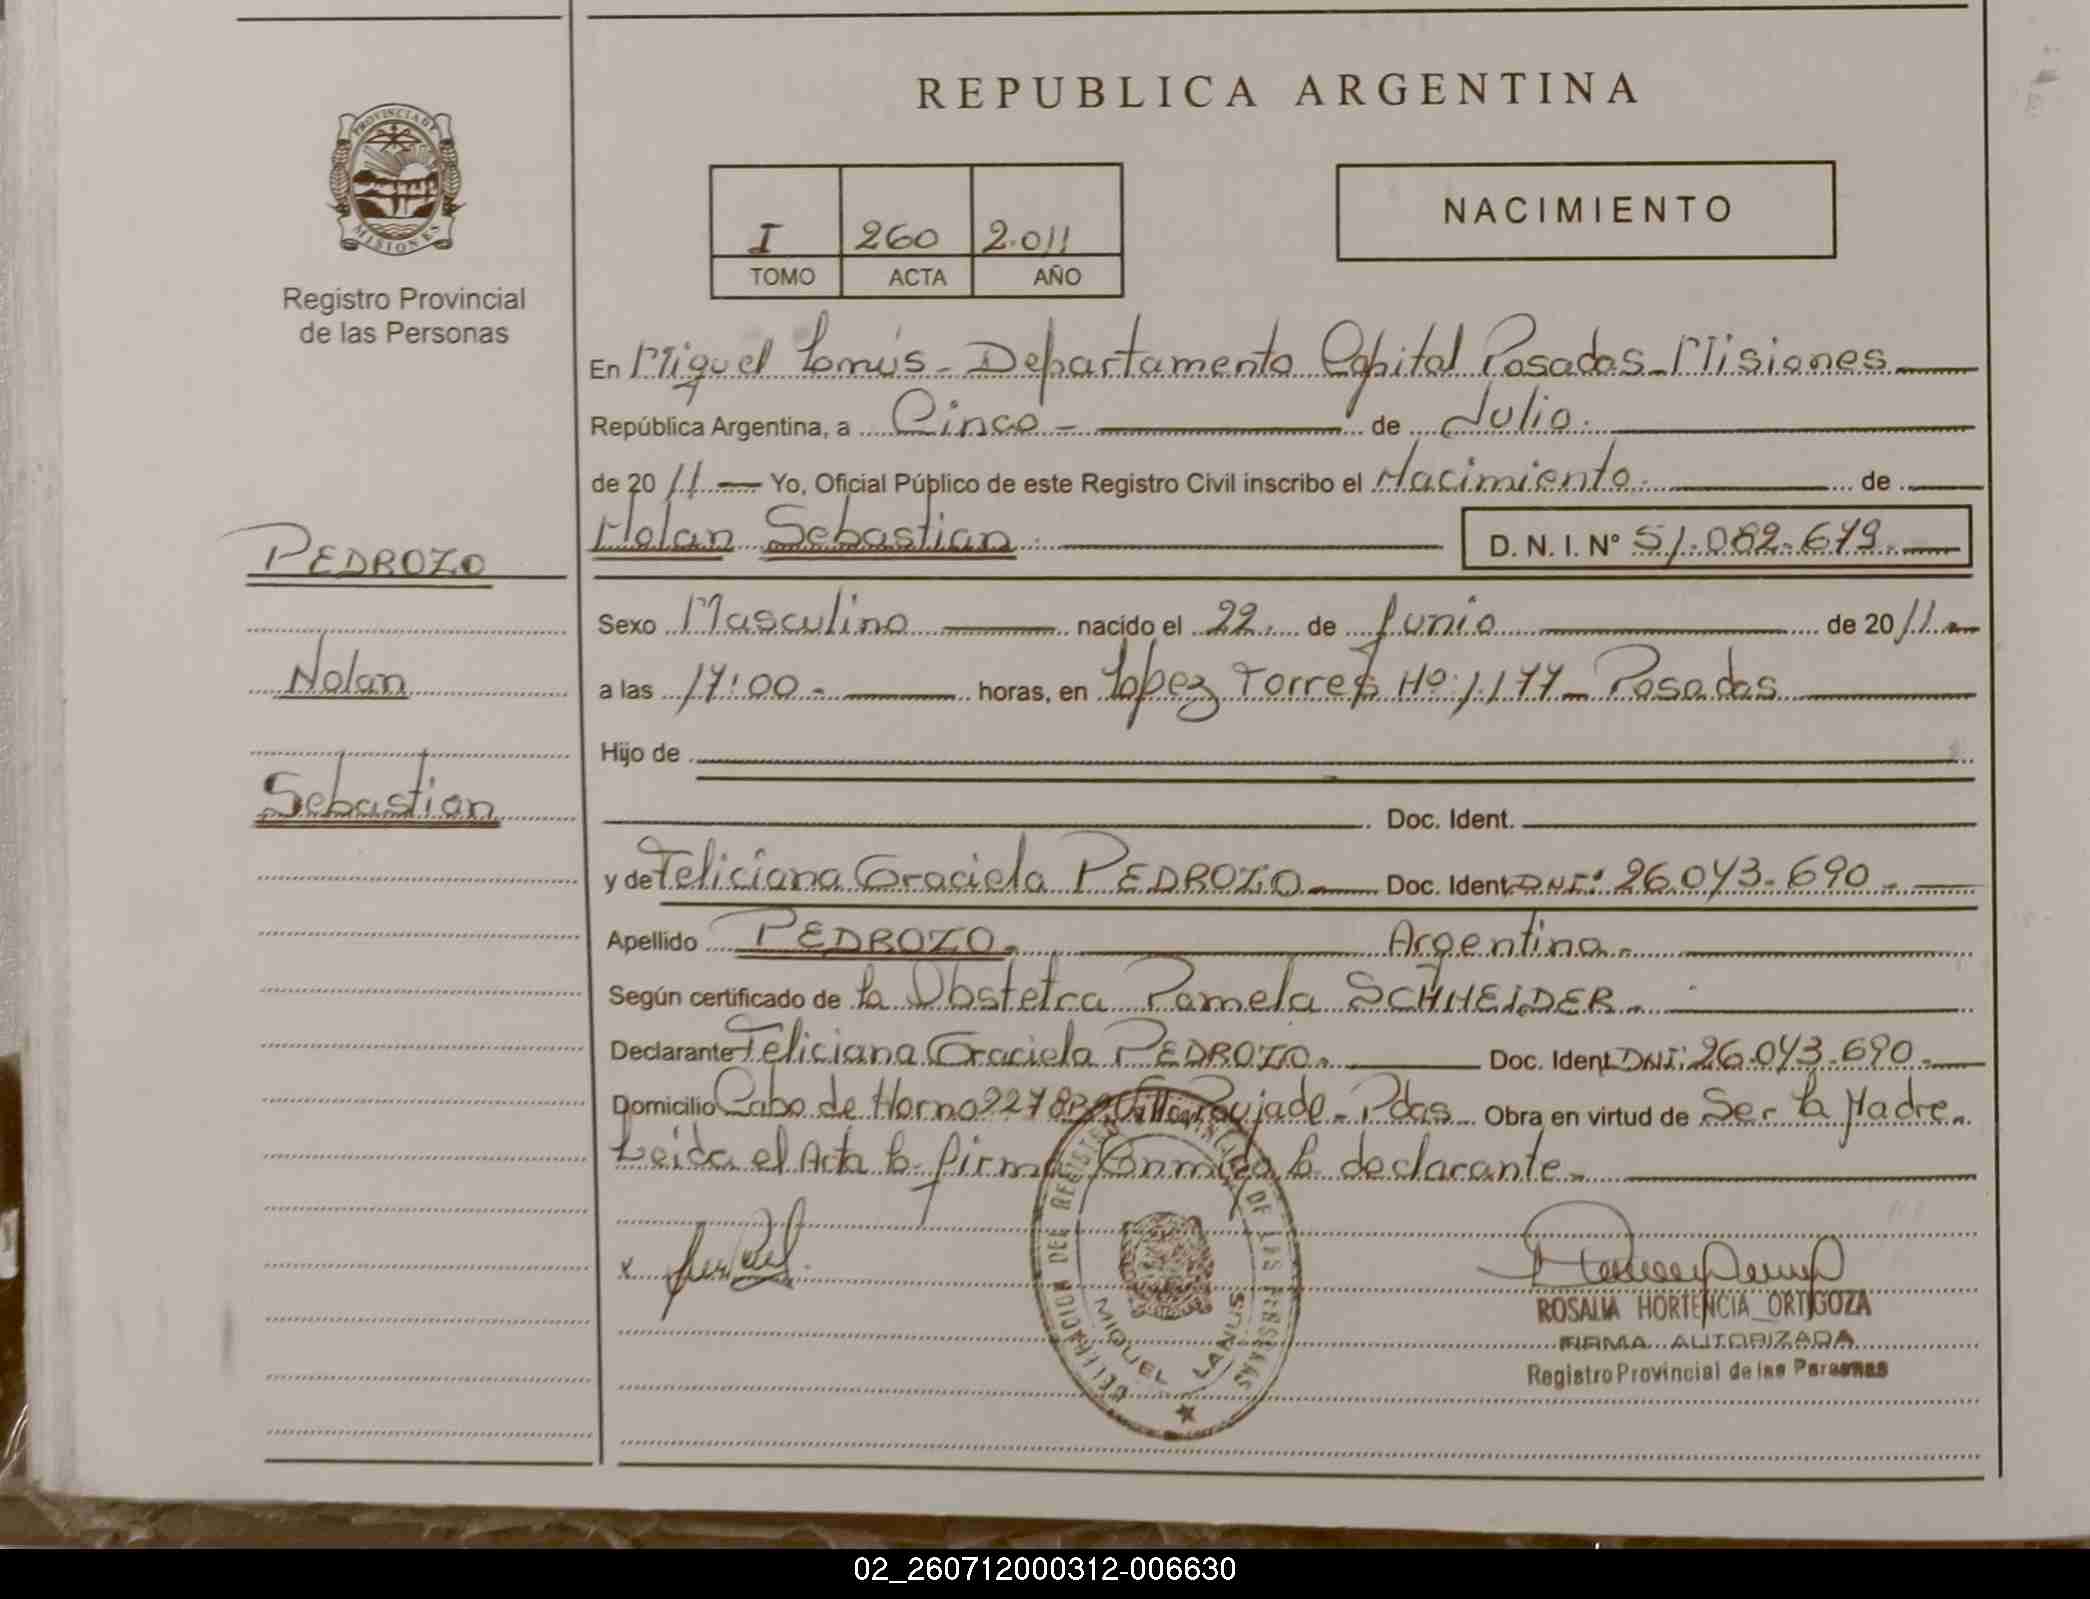 REPUBLICA ARGENTINA
PROVINCIA DE
MISIONES
Registro Provincial
de las Personas
I 260 2.011
TOMO ACTA AÑO
NACIMIENTO
En Miguel Lanús - Departamento Capital Posadas - Misiones
República Argentina, a Cinco - de Julio.
de 2011 Yo, Oficial Público de este Registro Civil inscribo el Nacimiento. de
Nolan Sebastian. D. N. I. Nº 51.082.679.
PEDROZO
Nolan
Sebastian
Sexo Masculino nacido el 22. de Junio de 2011.
a las 17:00 - horas, en López Torres Nº 1.177 - Posadas
Hijo de
Doc. Ident.
y de Feliciana Graciela PEDROZO Doc. Ident. DNI: 26.043.690 -
Apellido PEDROZO. Argentina.
Según certificado de la Obstetra Pamela SCHNEIDER.
Declarante Feliciana Graciela PEDROZO. Doc. Ident. DNI: 26.043.690.
Domicilio Cabo de Horno 2278 Bº Villa Poujade - Pdas Obra en virtud de Ser la Madre.
Leida el Acta la firma conmigo la declarante.
x
DELEGACION DEL REGISTRO PROVINCIAL DE LAS PERSONAS
MIGUEL LANUS
ROSALIA HORTENCIA ORTIGOZA
FIRMA AUTORIZADA
Registro Provincial de las Personas
02_260712000312-006630